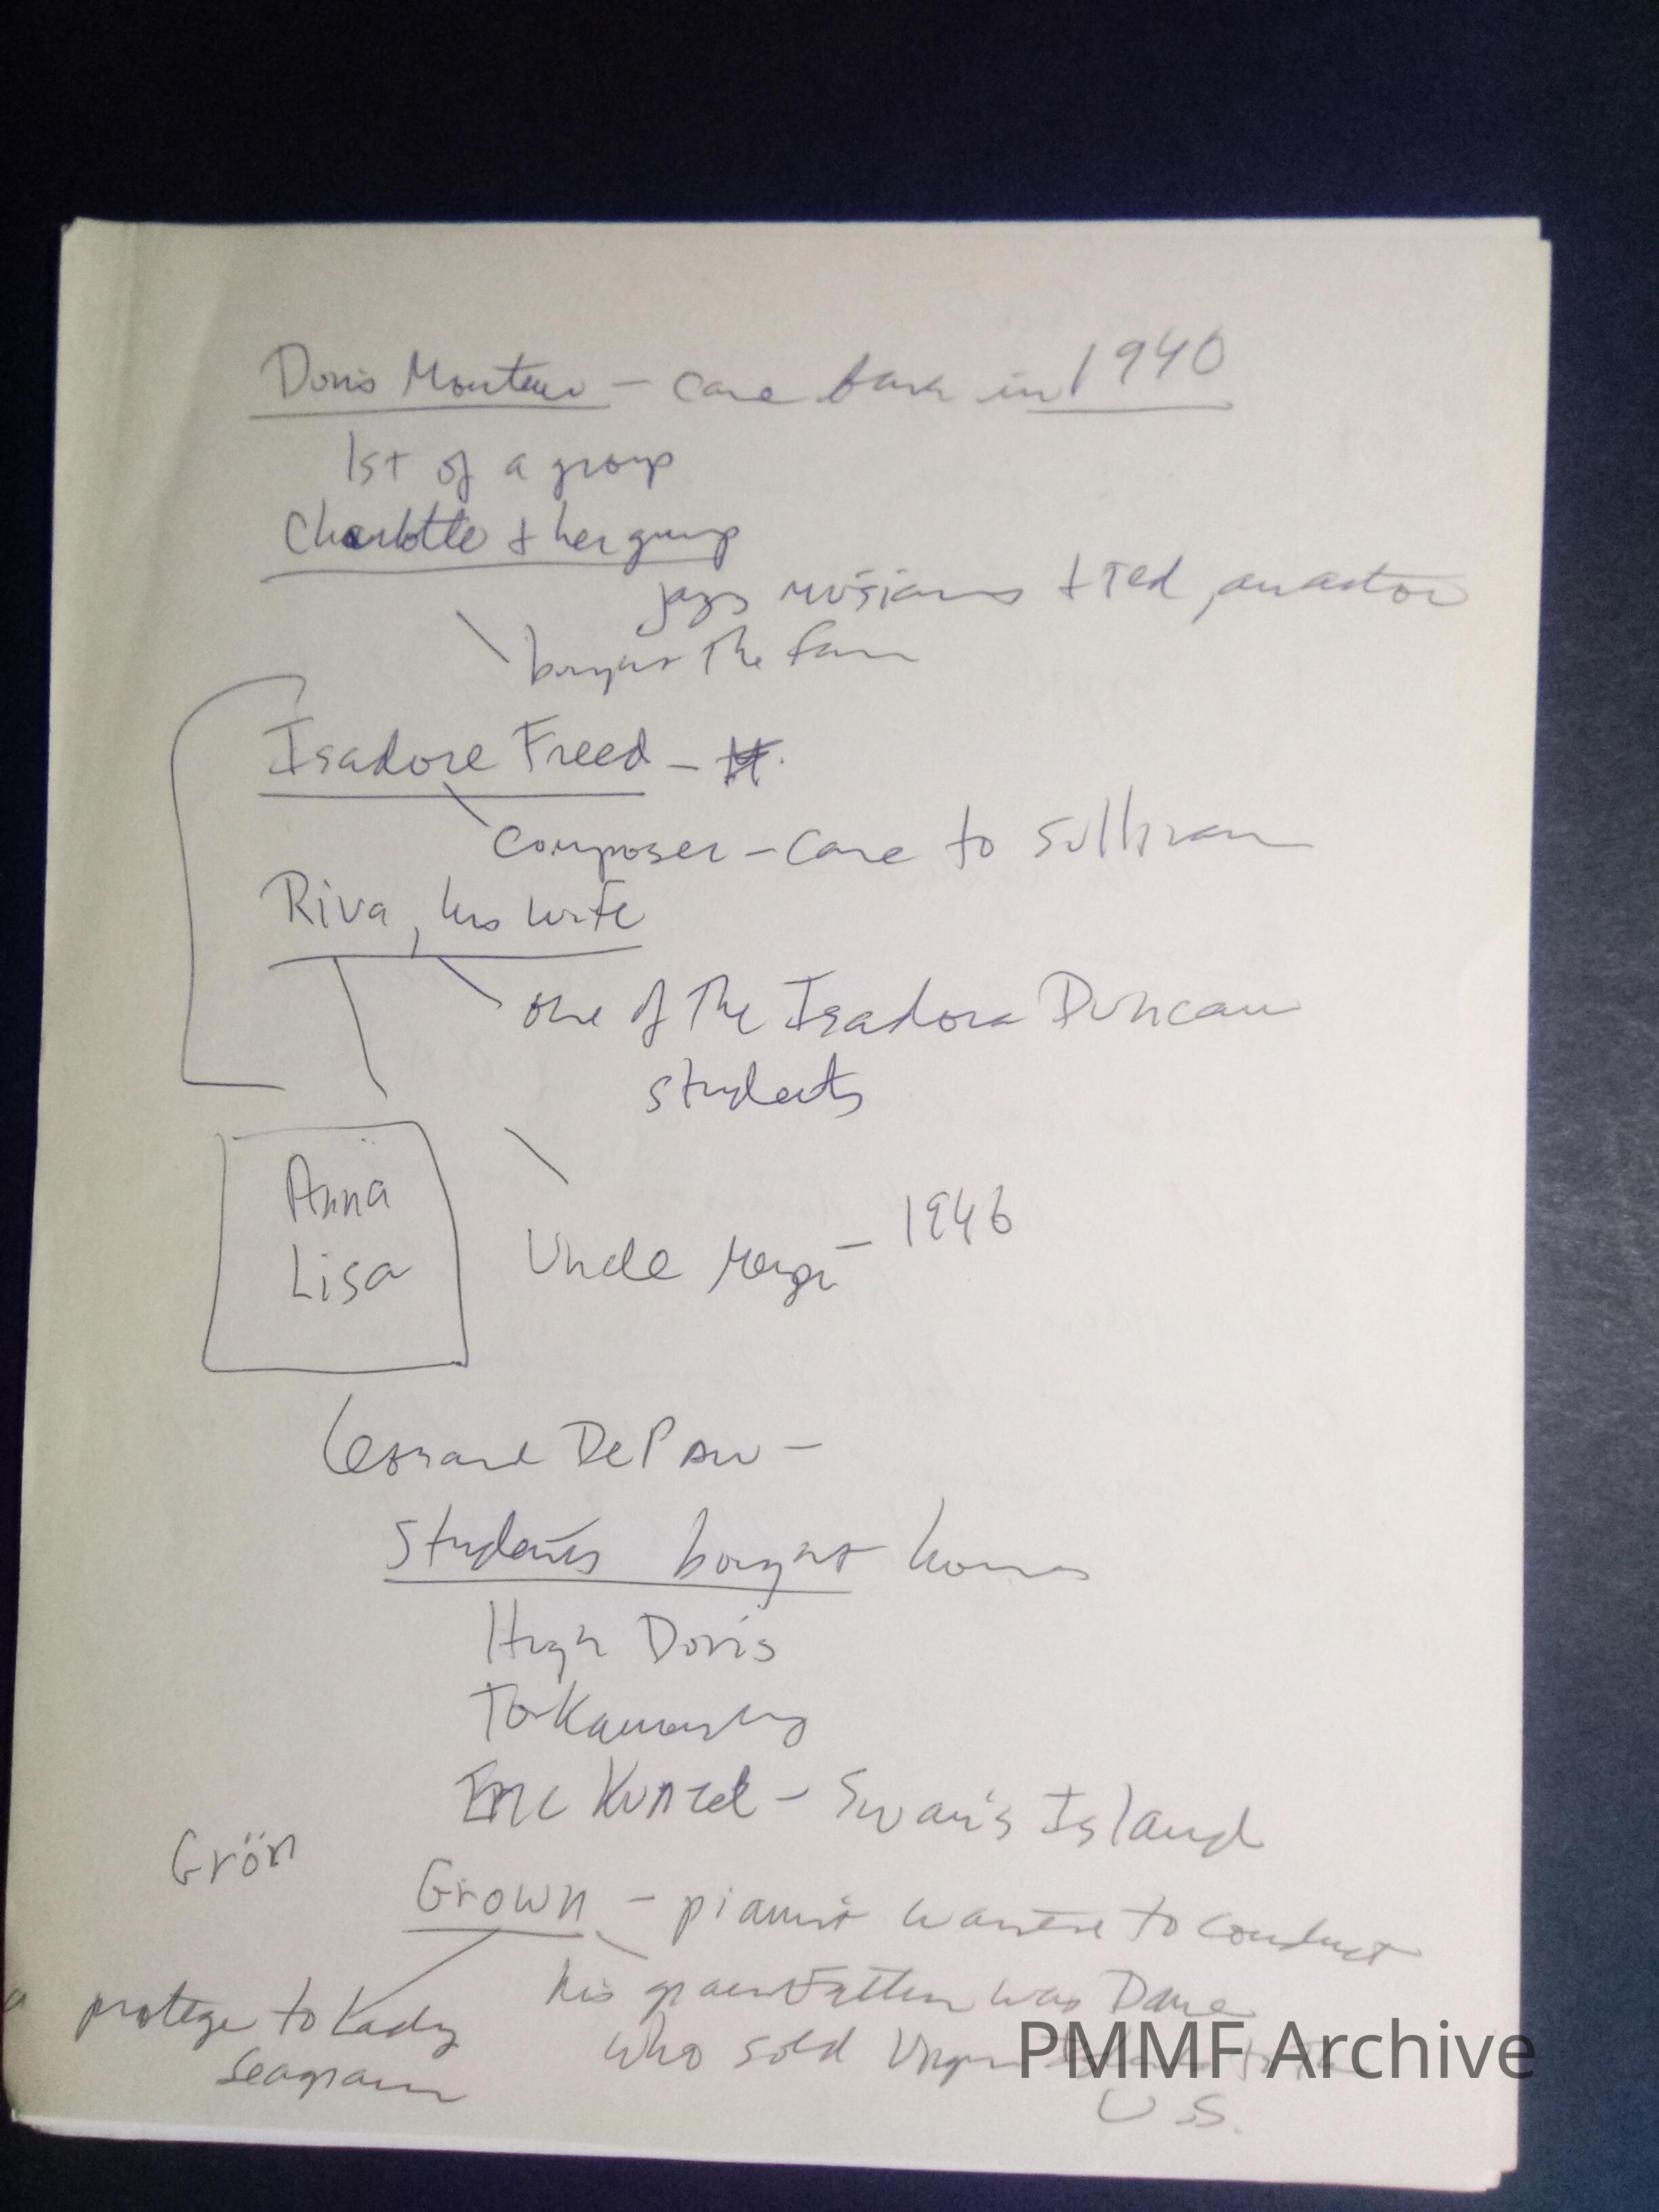 Doris Monteux - came back in 1940
1st of a group
Charlotte + her group
jazz musicians + Ted, an actor
bought the farm
Isadore Freed -
composer - came to Sullivan
Riva, his wife
one of the Isadora Duncan
students
Anna
Lisa
Uncle - 1946
Leonard DePaur -
Students bought homes
Hugh Doris
Eric Kunzel - Swan's Island
Grön
Grown - pianist wanted to conduct
his grandfather was Dane
who sold Virgin to the
U.S.
a protege to Lady
Seagram
PMMF Archive